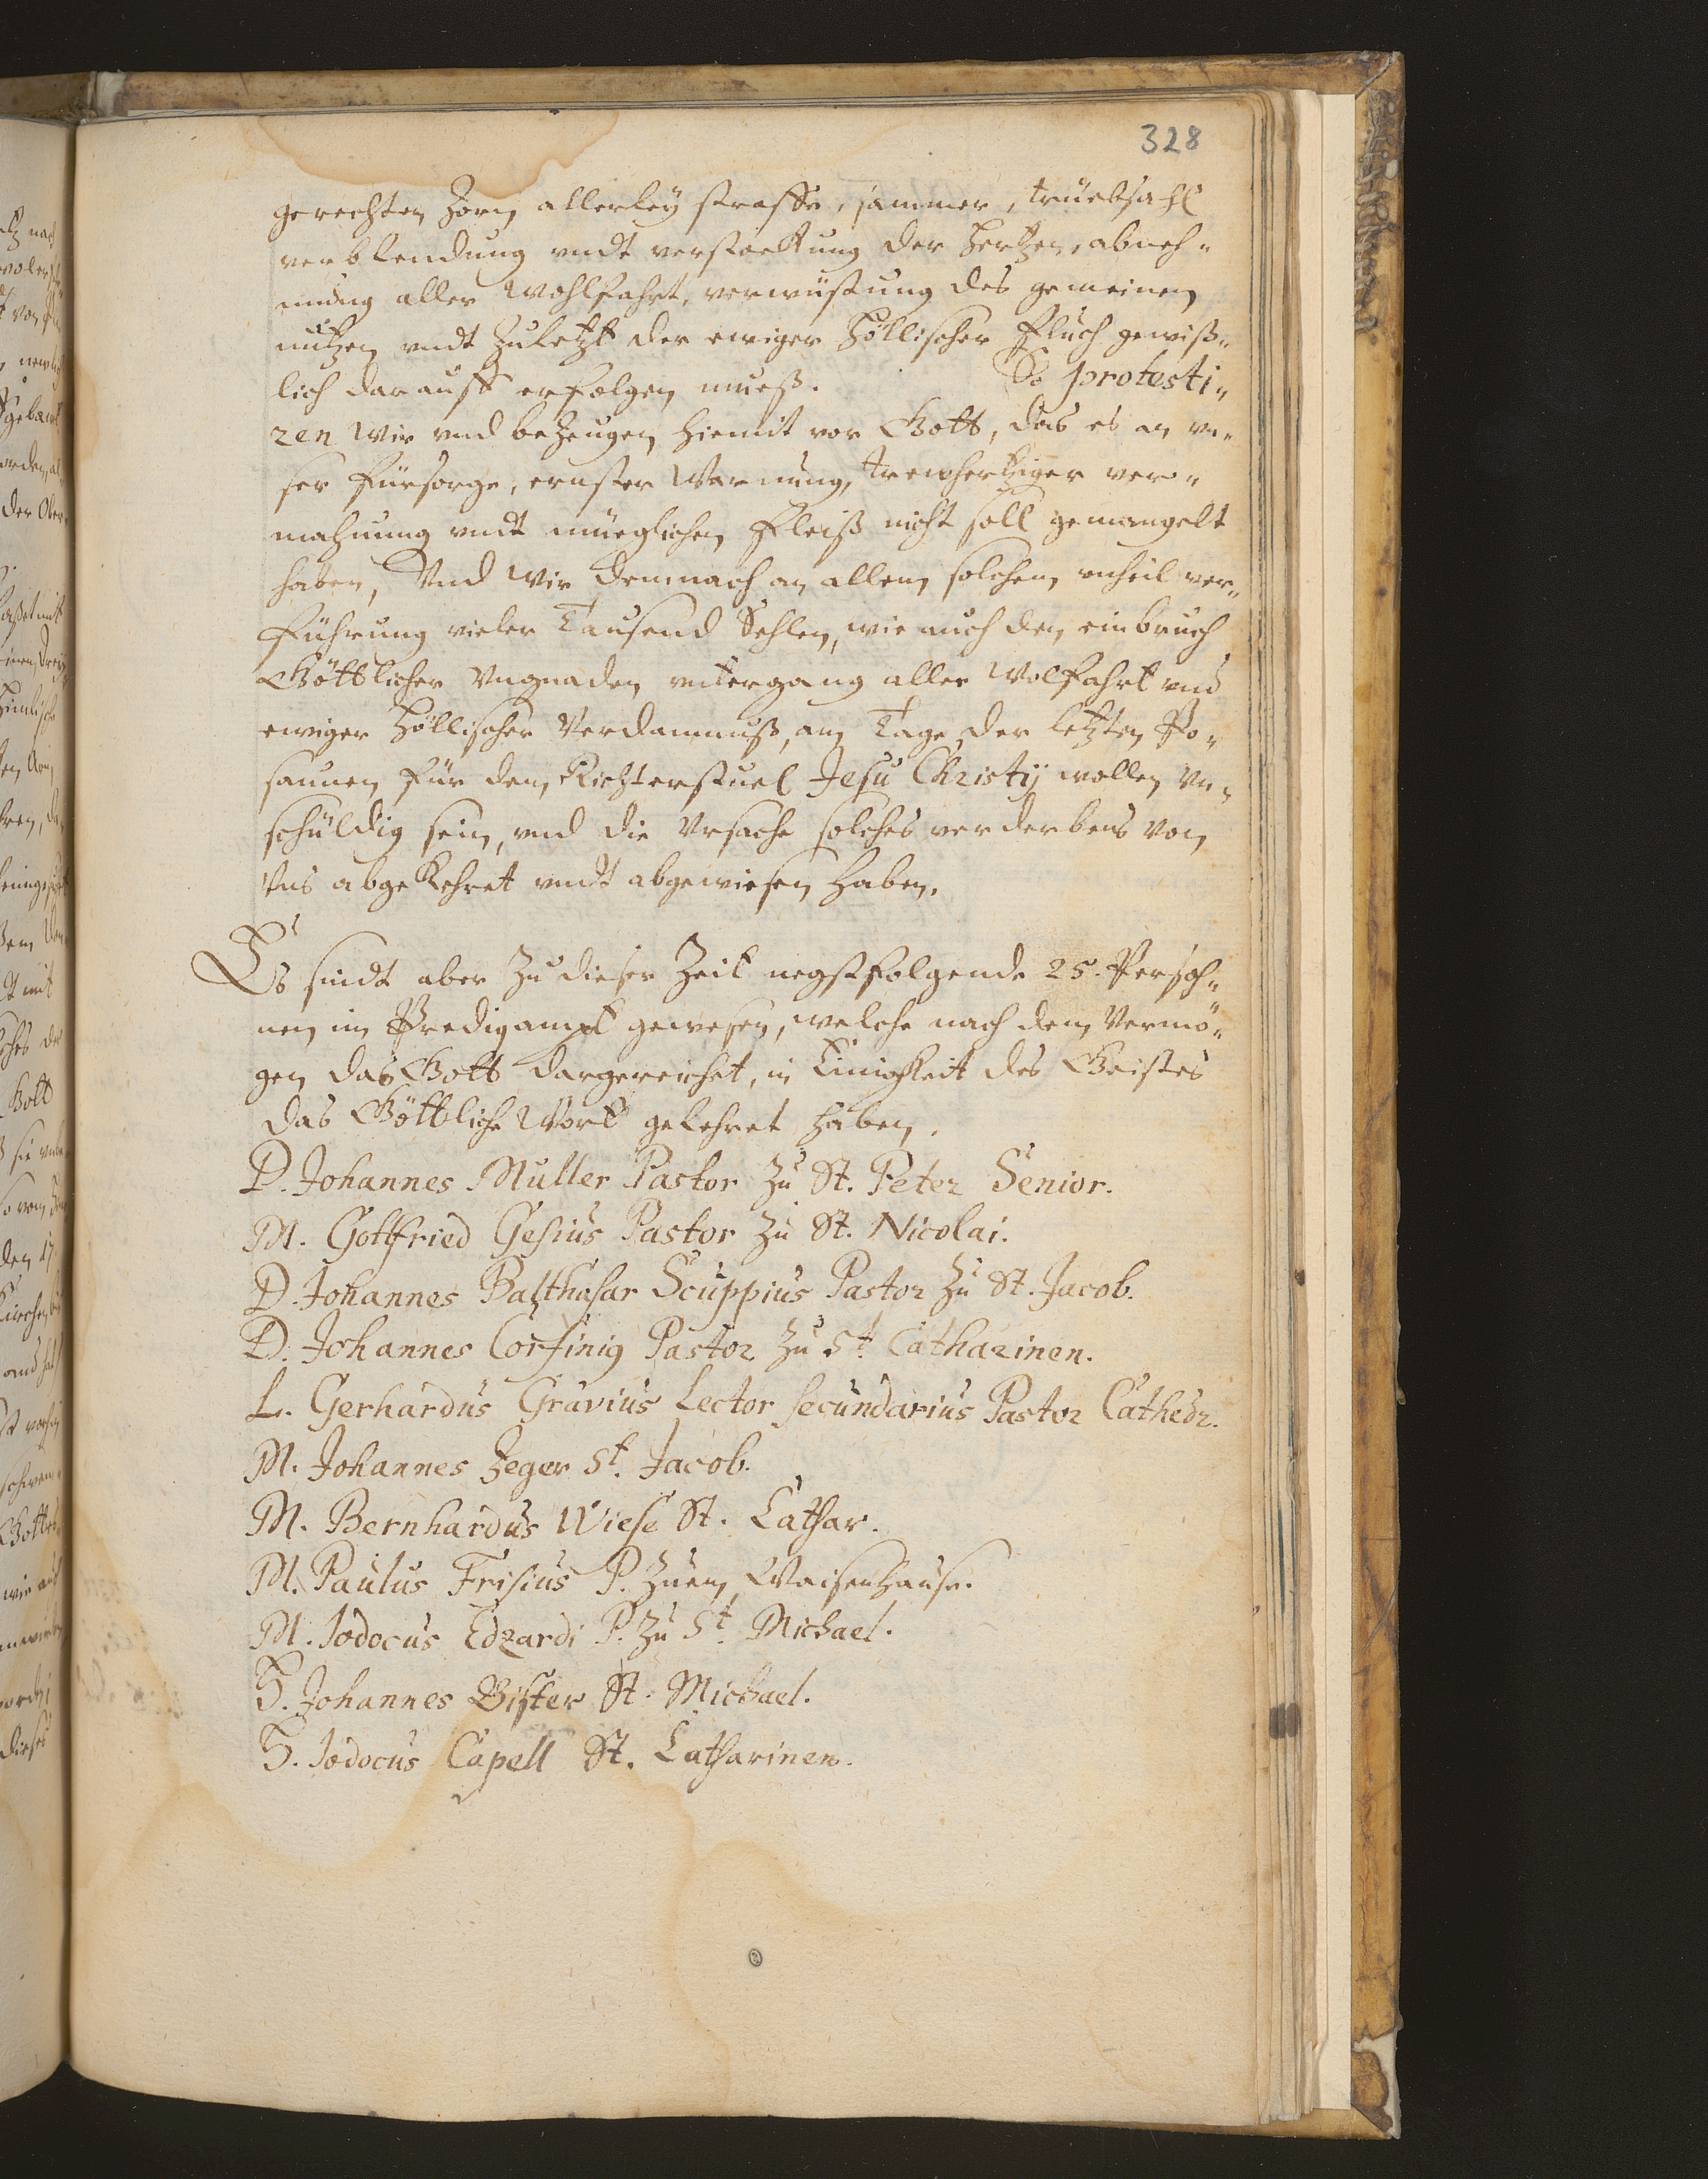 328
gerechten Zorn allerley straffe, jammer, trüebsahl
verblendung undt verstockung der Hertzen, abneh„
mung aller Wohlfahrt, verwüstung des gemeinen
nutzen undt zuletzt der ewiger Höllischer Fluch gewiß„
lich darauff erfolgen mueß. So protesti„
ren Wir und bezeugen hiemit vor Gott, das es an un„
ser fürsorge, ernster Warnung, trewhertziger ver„
mahnung undt müeglichen Fleiß nicht soll gemangelt
haben, Und Wir demnach an allem solchem unheil ver„
führung vieler Tausend Sehlen, wie auch den einbruch
Göttlicher Ungnaden untergang aller Wolfahrt und
ewiger Höllischer Verdamnuß, am Tage der letzten Po„
saunen für dem Richterstuel Jesu Christij wollen Un„
schüldig sein, und die Ursache solches verderbens von
Uns abgekehret undt abgewiesen haben.
Es sindt aber zu dieser Zeit negstfolgende 25. Persoh„
nen im Predigampt gewesen, welche nach dem Vermö„
gen das Gott dargereichet, in Einigkeit des Geistes
das Göttliche Wort gelehret haben.
D. Johannes Muller Pastor zu St. Peter Senior.
M. Gottfried Gesius Pastor zu St. Nicolai.
D. Johannes Balthasar Scuppius Pastor zu St. Jacob.
D. Johannes Corfinig Pastor zu St. Catharinen.
L. Gerhardus Gravius Lector secundarius Pastor Cathedr.
M. Johannes Jeger St. Jacob.
M. Bernhardus Wiese St. Cathar.
M. Paulus Frisius P. zuem Waisenhause.
M. Jodocus Edzardi P. zu St. Michael.
H. Johannes Bister St. Michael.
H. Jodocus Capell St. Catharinen.